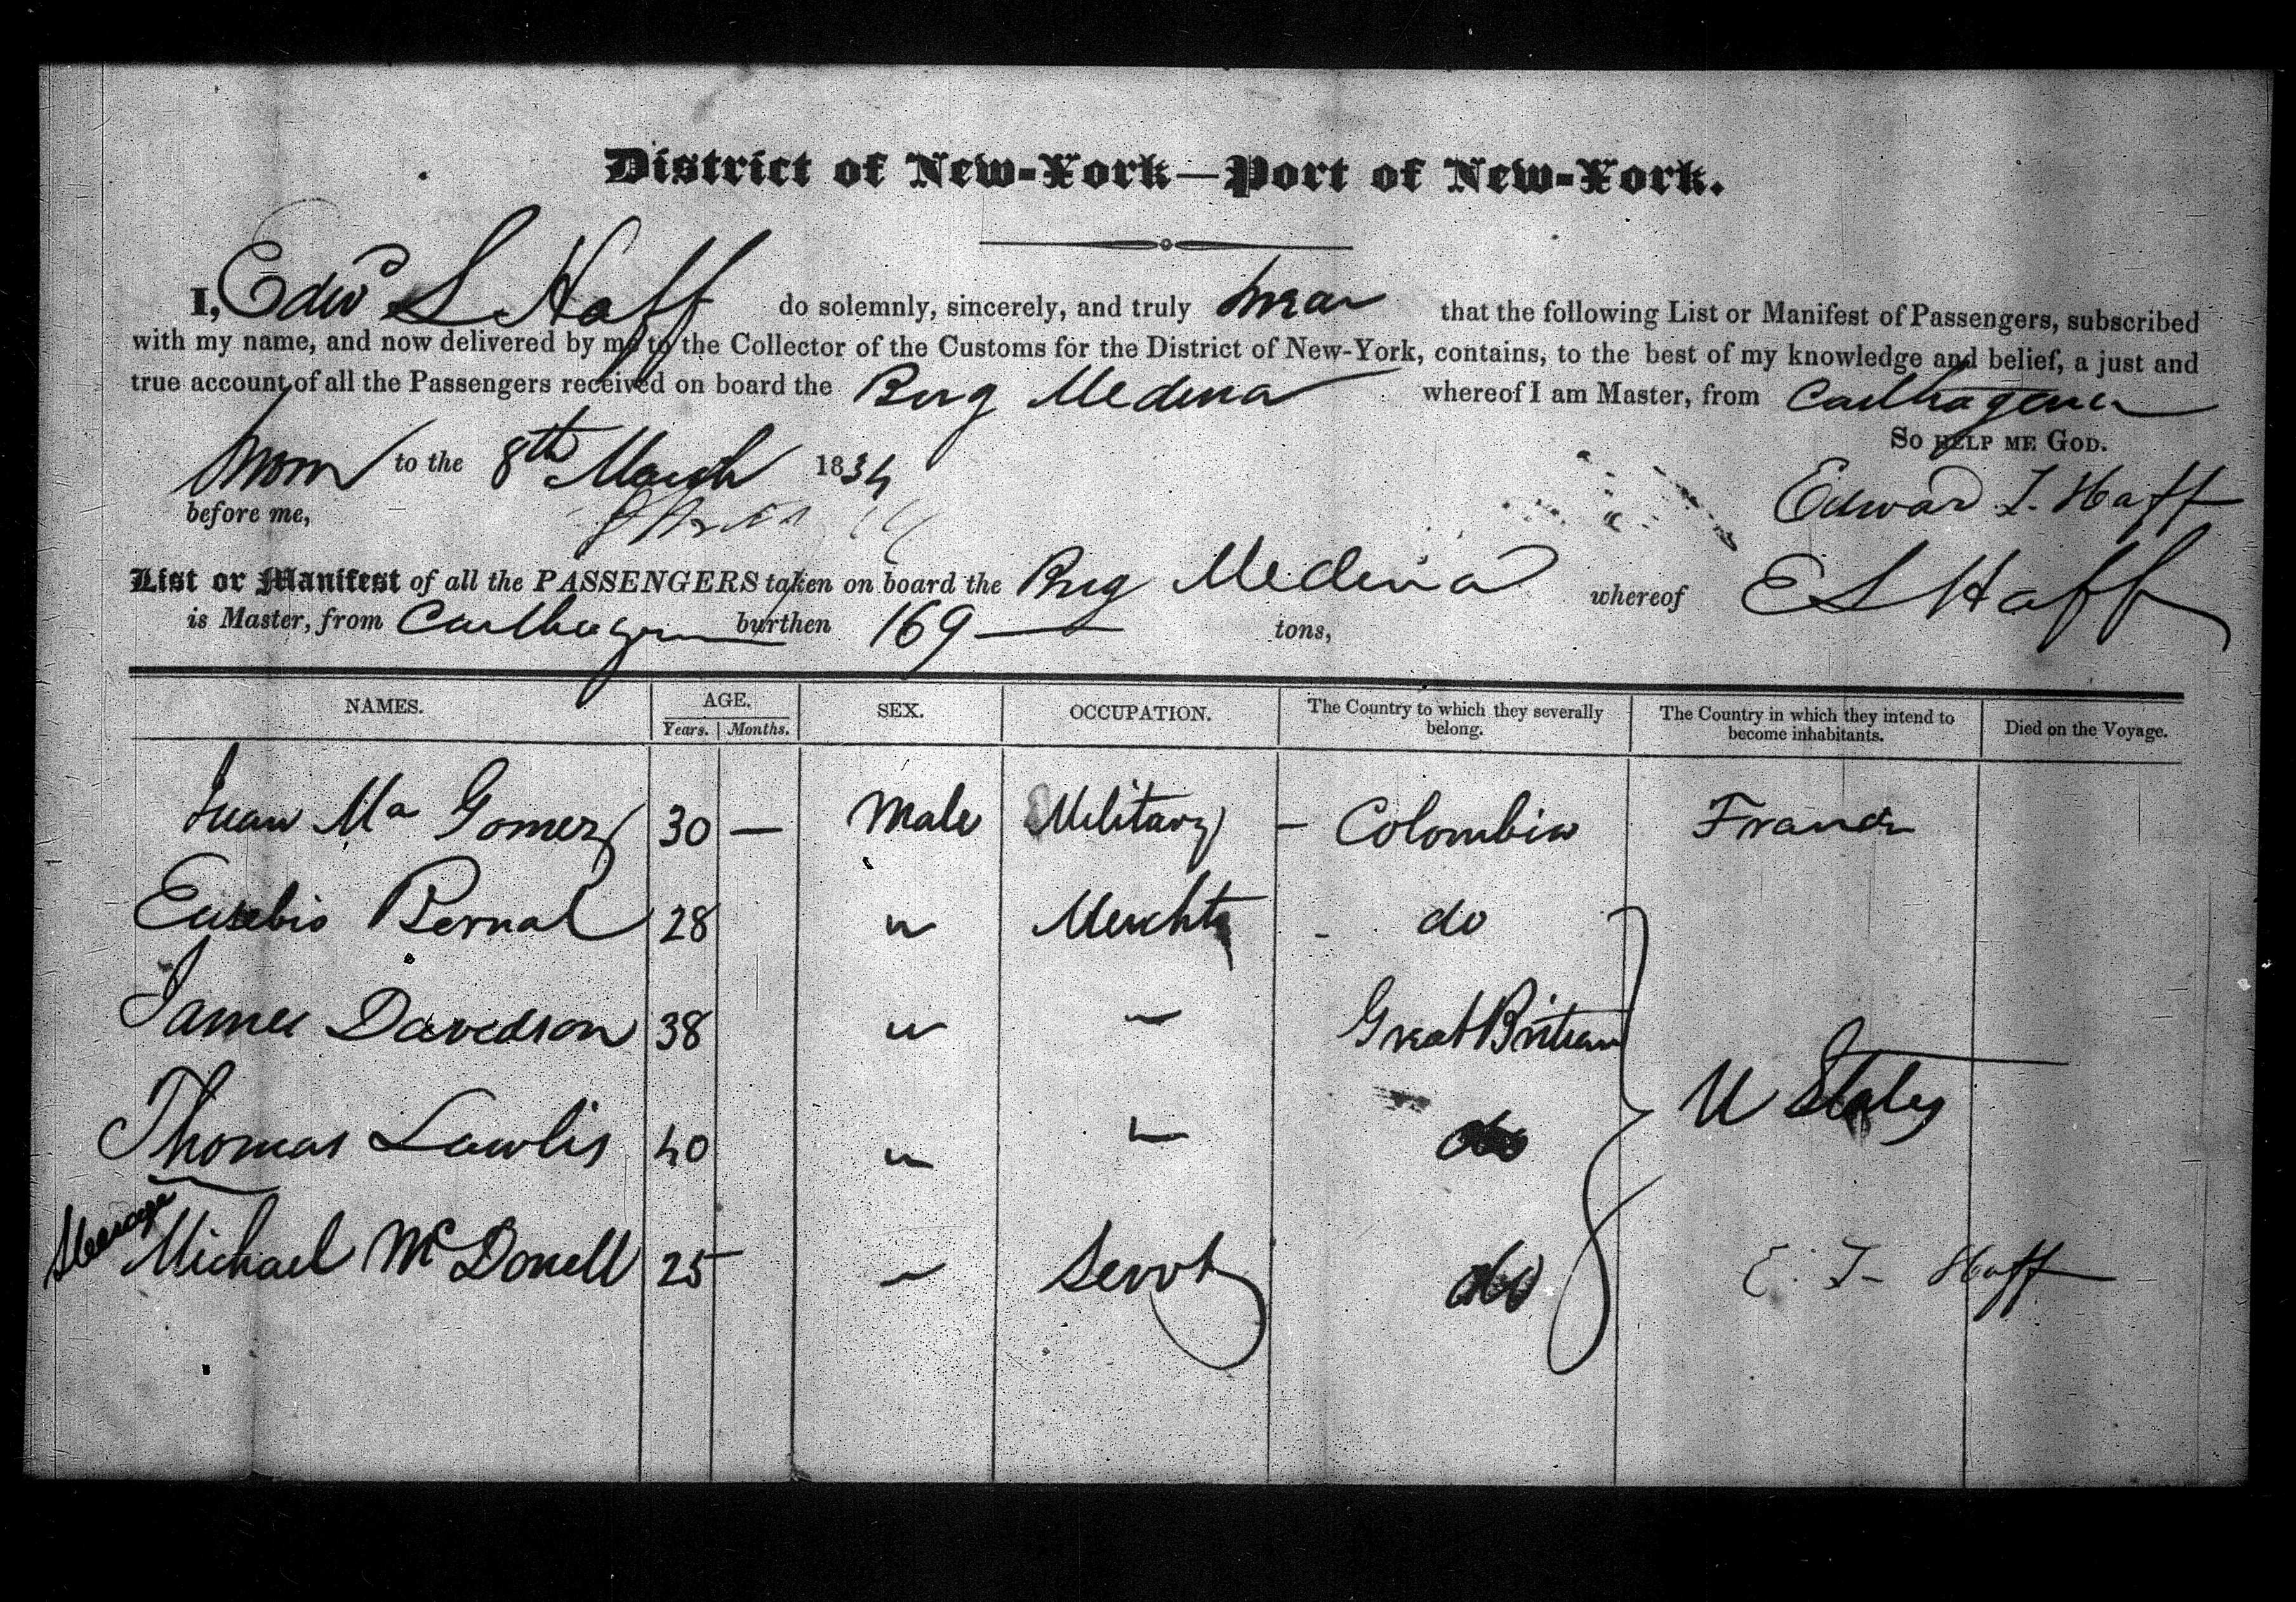 District of New-York—Port of New-York.
I, Edwd S Haff do solemnly, sincerely, and truly swear that the following List or Manifest of Passengers, subscribed
with my name, and now delivered by me to the Collector of the Customs for the District of New-York, contains, to the best of my knowledge and belief, a just and
true account of all the Passengers received on board the Brig Medina whereof I am Master, from Carthagena
SO HELP ME GOD.
Sworn to the 8th March 1834
Edward T. Haff
before me,
List or Manifest of all the PASSENGERS taken on board the Brig Medina whereof E S Haff
is Master, from Carthagena burthen 169 tons,
NAMES. AGE. Years. Months. SEX. OCCUPATION. The Country to which they severally belong. The Country in which they intend to become inhabitants. Died on the Voyage.
Juan Ma Gomez 30 — Male Military — Colombia France
Eusebio Bernal 28 " Mercht - do
James Davedson 38 " " Great Britian
Thomas Lawlis 40 " " do U States
Steerage Michael McDonell 25 " Servt do
E. T. Haff